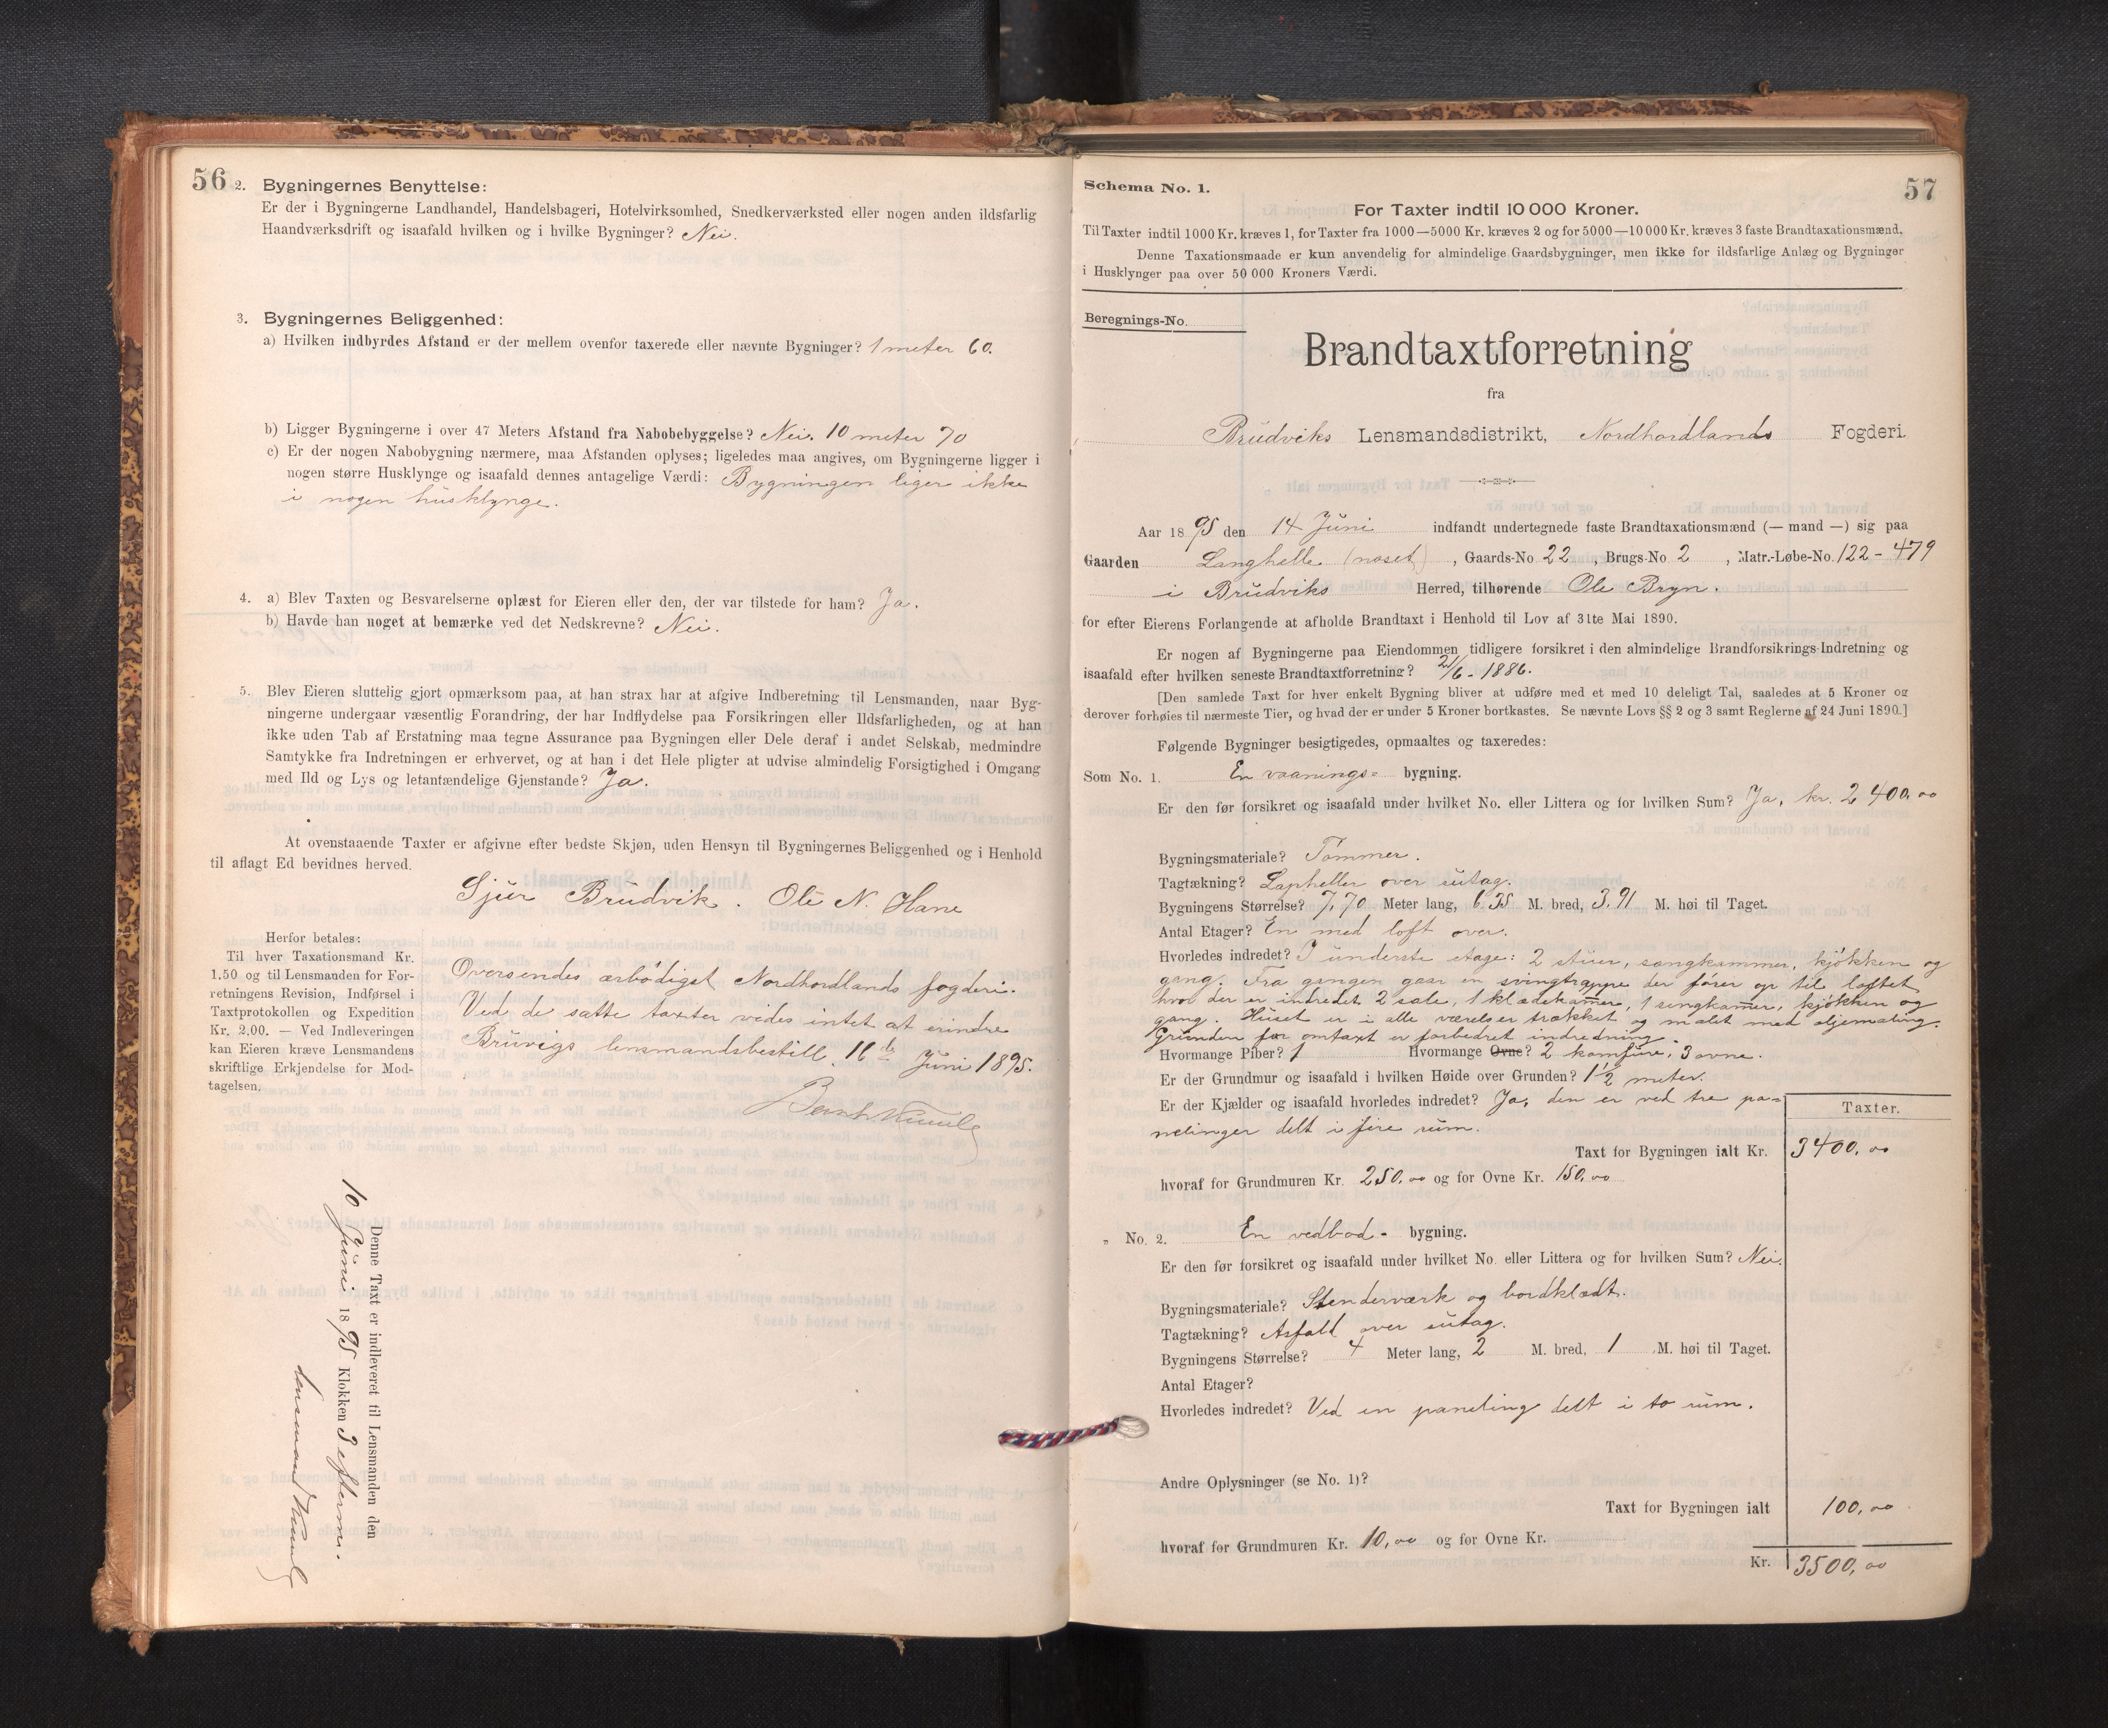 56
2. Bygningernes Benyttelse:
Er der i Bygningerne Landhandel, Handelsbageri, Hotelvirksomhed, Snedkerværksted eller nogen anden ildsfarlig
Haandværksdrift og isaafald hvilken og i hvilke Bygninger? Nei.
3. Bygningernes Beliggenhed:
a) Hvilken indbyrdes Afstand er der mellem ovenfor taxerede eller nævnte Bygninger? 1 meter 60.
b) Ligger Bygningerne i over 47 Meters Afstand fra Nabobebyggelse? Nei. 10 meter 70
c) Er der nogen Nabobygning nærmere, maa Afstanden oplyses; ligeledes maa angives, om Bygningerne ligger i
nogen større Husklynge og isaafald dennes antagelige Værdi: Bygningen liger ikke
i nogen husklynge.
4. a) Blev Taxten og Besvarelserne oplæst for Eieren eller den, der var tilstede for ham? Ja.
b) Havde han noget at bemærke ved det Nedskrevne? Nei.
5. Blev Eieren sluttelig gjort opmærksom paa, at han strax har at afgive Indberetning til Lensmanden, naar Byg-
ningerne undergaar væsentlig Forandring, der har Indflydelse paa Forsikringen eller Ildsfarligheden, og at han
ikke uden Tab af Erstatning maa tegne Assurance paa Bygningen eller Dele deraf i andet Selskab, medmindre
Samtykke fra Indretningen er erhvervet, og at han i det Hele pligter at udvise almindelig Forsigtighed i Omgang
med Ild og Lys og letantændelige Gjenstande? Ja.
At ovenstaaende Taxter er afgivne efter bedste Skjøn, uden Hensyn til Bygningernes Beliggenhed og i Henhold
til aflagt Ed bevidnes herved.
Sjur Brudvik. Ole N. Hane
Herfor betales:
Til hver Taxationsmand Kr.
1.50 og til Lensmanden for For-
retningens Revision, Indførsel i
Taxtprotokollen og Expedition
Kr. 2.00. — Ved Indleveringen
kan Eieren kræve Lensmandens
skriftlige Erkjendelse for Mod-
tagelsen.
Oversendes ærbødigst Nordhordlands fogderi.
Ved de satte taxter vides intet at erindre
Bruvigs lensmandsbestill. 16 Juni 1895.
Denne Taxt er indleveret til Lensmanden den
10 Juni 1895 Klokken 3 efterm.
Lensmand
57
Schema No. 1.
For Taxter indtil 10 000 Kroner.
Til Taxter indtil 1000 Kr. kræves 1, for Taxter fra 1000—5000 Kr. kræves 2 og for 5000—10 000 Kr. kræves 3 faste Brandtaxationsmænd.
Denne Taxationsmaade er kun anvendelig for almindelige Gaardsbygninger, men ikke for ildsfarlige Anlæg og Bygninger
i Husklynger paa over 50 000 Kroners Værdi.
Beregnings-No.
Brandtaxtforretning
fra
Brudviks Lensmandsdistrikt, Nordhordlands Fogderi.
Aar 1895 den 14 Juni indfandt undertegnede faste Brandtaxationsmænd (— mand —) sig paa
Gaarden Langhelle (noset), Gaards-No 22, Brugs-No 2, Matr.-Løbe-No. 122-479
i Brudviks Herred, tilhørende Ole Bryn.
for efter Eierens Forlangende at afholde Brandtaxt i Henhold til Lov af 31te Mai 1890.
Er nogen af Bygningerne paa Eiendommen tidligere forsikret i den almindelige Brandforsikrings-Indretning og
isaafald efter hvilken seneste Brandtaxtforretning? 21/6-1886.
[Den samlede Taxt for hver enkelt Bygning bliver at udføre med et med 10 deleligt Tal, saaledes at 5 Kroner og
derover forhøies til nærmeste Tier, og hvad der er under 5 Kroner bortkastes. Se nævnte Lovs §§ 2 og 3 samt Reglerne af 24 Juni 1890.]
Følgende Bygninger besigtigedes, opmaaltes og taxeredes:
Som No. 1. En vaanings- bygning.
Er den før forsikret og isaafald under hvilket No. eller Littera og for hvilken Sum? Ja, kr. 2400,00
Bygningsmateriale? Tømmer.
Tagtækning? Lapheller over sutag.
Bygningens Størrelse? 7,70 Meter lang, 6,35 M. bred, 3,91 M. høi til Taget.
Antal Etager? En med loft over.
Hvorledes indredet? I underste etage: 2 stuer, sangkammer, kjøkken og
gang. Fra gangen gaar en svingtrappe der fører op til loftet
hvor der er indredet 2 sale, 1 klædekamer, 1 sengkamer, kjøkken og
gang. Huset er i alle værelser trækket og malet med oljemaling.
Grunden for omtaxt er forbedret indredning.
Hvormange Piber? 1 Hvormange Ovne? 2 komfure, 3 ovne.
Er der Grundmur og isaafald i hvilken Høide over Grunden? 1 1/2 meter.
Er der Kjælder og isaafald hvorledes indredet? Ja, den er ved tre pa-
nelinger delt i fire rum.
Taxter.
Taxt for Bygningen ialt Kr. 3400,00
hvoraf for Grundmuren Kr. 250,00 og for Ovne Kr. 150,00
„ No. 2. En vedbod- bygning.
Er den før forsikret og isaafald under hvilket No. eller Littera og for hvilken Sum? Nei.
Bygningsmateriale? Stenderværk og bordklædt.
Tagtækning? Asfald over sutag.
Bygningens Størrelse? 4 Meter lang, 2 M. bred, 1 M. høi til Taget.
Antal Etager?
Hvorledes indredet? Ved en paneling delt i to rum.
Andre Oplysninger (se No. 1)?
Taxt for Bygningen ialt 100,00
hvoraf for Grundmuren Kr. 10,00 og for Ovne Kr.
Kr. 3500,00